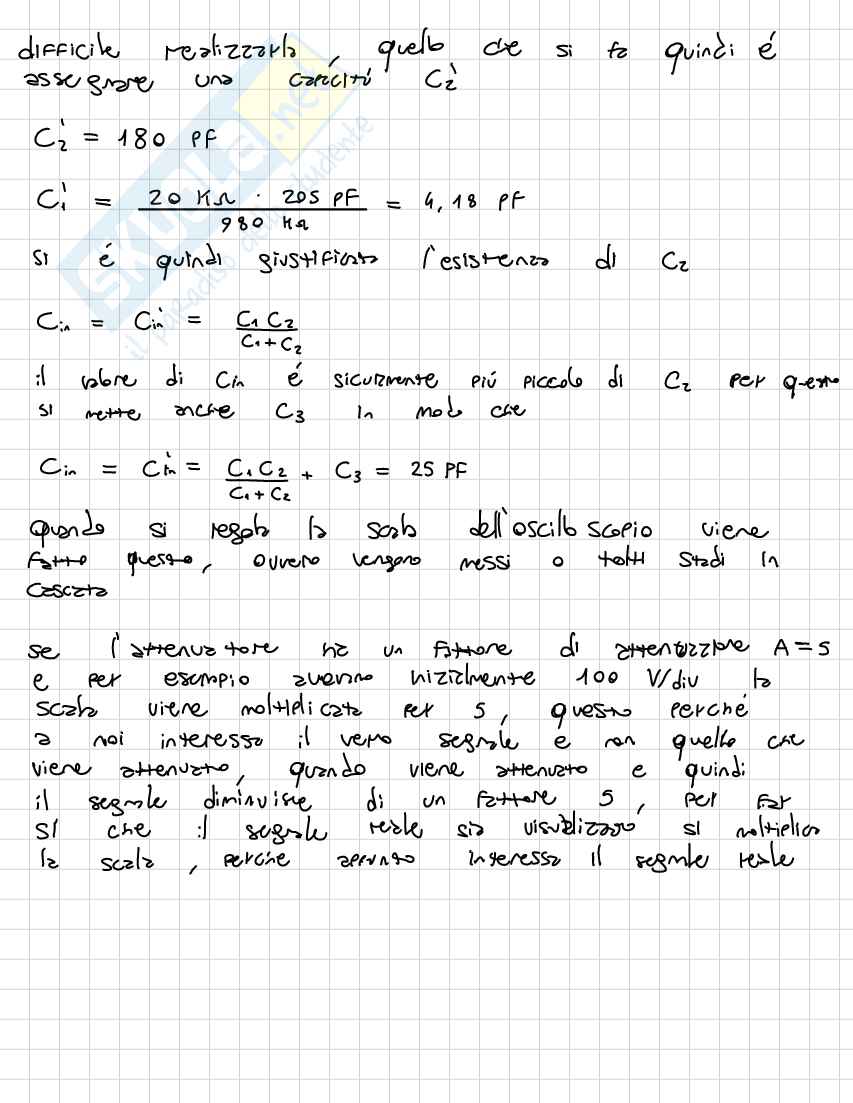 difficile realizzarla, quello che si fa quindi é
assegnare una capacitá C2'
C2' = 180 pF
C1' = 20 KΩ · 205 pF / 980 KΩ = 4,18 pF
si é quindi giustificata l'esistenza di C2
Cin = Cin' = C1 C2 / C1 + C2
il valore di Cin é sicuramente piú piccolo di C2 per questo
si mette anche C3 in modo che
Cin = Cin' = C1 C2 / C1 + C2 + C3 = 25 pF
quando si regola la scala dell'oscilloscopio viene
fatto questo, ovvero vengono messi o tolti stadi in
cascata
se l'attenuatore ha un fattore di attenuazione A = 5
e per esempio avevamo inizialmente 100 V/div la
scala viene moltiplicata per 5, questo perché
a noi interessa il vero segnale e non quello che
viene attenuato, quando viene attenuato e quindi
il segnale diminuisce di un fattore 5, per far
sí che il segnale reale sia visualizzato si moltiplica
la scala, perche appunto interessa il segnale reale
SKUOLA.net
il paradiso dello studente